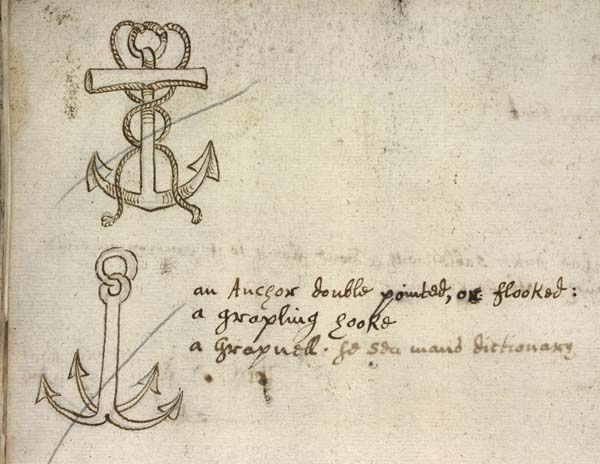 an Anchor double pointed, or flooked:
a grapling hooke
a Grapnell. se sea mans dictionary